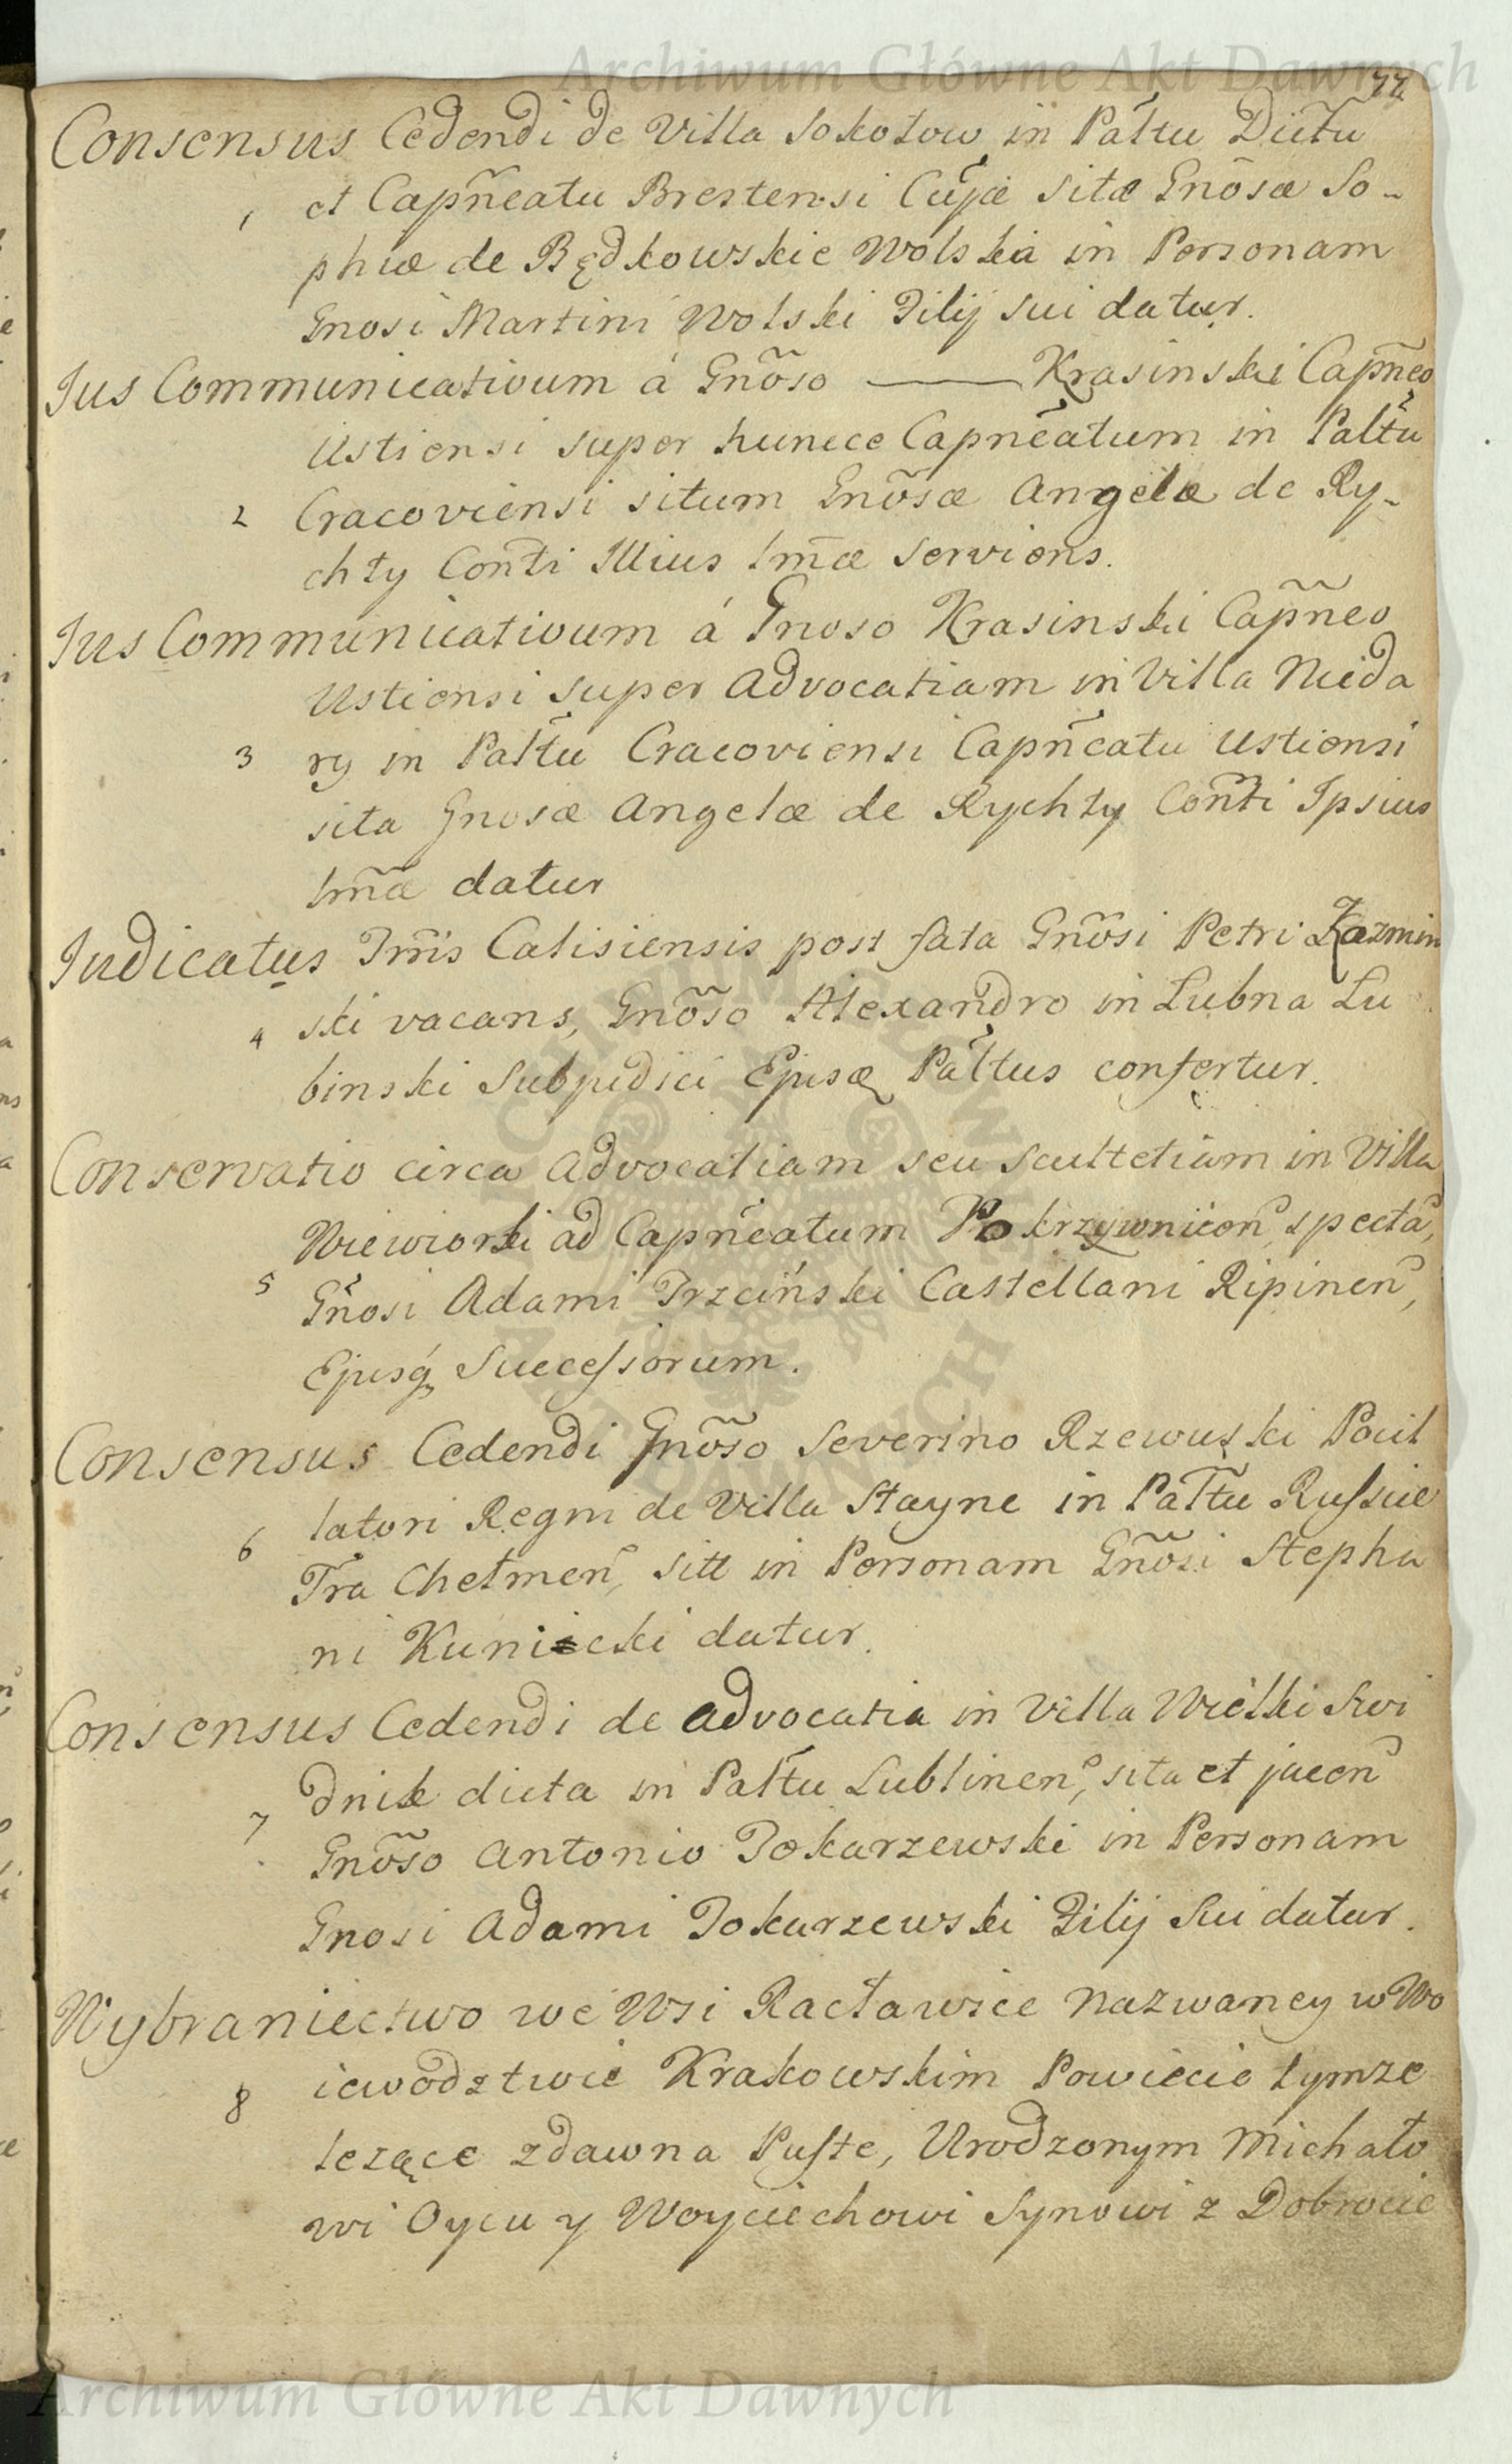 Archiwum Główne Akt Dawnych
77
Consensus Cedendi de Villa Sokołow in Pałtu Dictu
1 et Capñeatu Brestensi Cujæ sitæ Gnõsæ So-
phiæ de Będkowskie Wolska in Personam
Gnosi Martini Wolski Filij sui datur.
Jus Communicativum á Gnõso —— Krasinski Capñeo
Ustiensi super huncce Capneatum in Paltũ
2 Cracoviensi situm Gnõsæ Angelæ de Ry-
chty Conti Illius Imæ serviens.
Jus Communicativum á Gnoso Krasinski Capñeo
Ustiensi super Advocatiam in Villa Nieda
3 ry in Paltu Cracoviensi Capñeatu Ustiensi
sita Gnosæ Angelæ de Rychty Conti Ipsius
Imæ datur
Judicatus Trris Calisiensis post fata Gnõsi Petri Kazmin
4 ski vacans, Gnõso Alexandro in Lubna Lu
binski Subjudici Ejusq Paltus confertur.
Conservatio circa Advocatiam seu scultetiam in Villa
Wiewiorki ad Capñeatum Pokrzywnicen, specta,
5 Gnosi Adami Trzciński Castellani Ripinen,
Ejusq́ Succeſsorum.
Consensus Cedendi Gnõso Severino Rzewuski Pocil
latori Regni de Villa Stayne in Paltu Ruſsiæ
6 Tra Chełmen, sitt in Personam Gnõsi Stepha
ni Kunicki datur.
Consensus Cedendi de Advocatia in Villa Wielki Swi
dnik dicta in Paltu Lublinen, sita et jacen
7 Gnõso Antonio Tokarzewski in Personam
Gnosi Adami Tokarzewski Filij sui datur.
Wybraniectwo we Wsi Racławice nazwaney w Wo
8 iewodztwie Krakowskim Powiecie tymze
lezące zdawna Puſte, Urodzonym Michało
wi Oycu y Woyciechowi Synowi z Dobrocie
Archiwum Główne Akt Dawnych